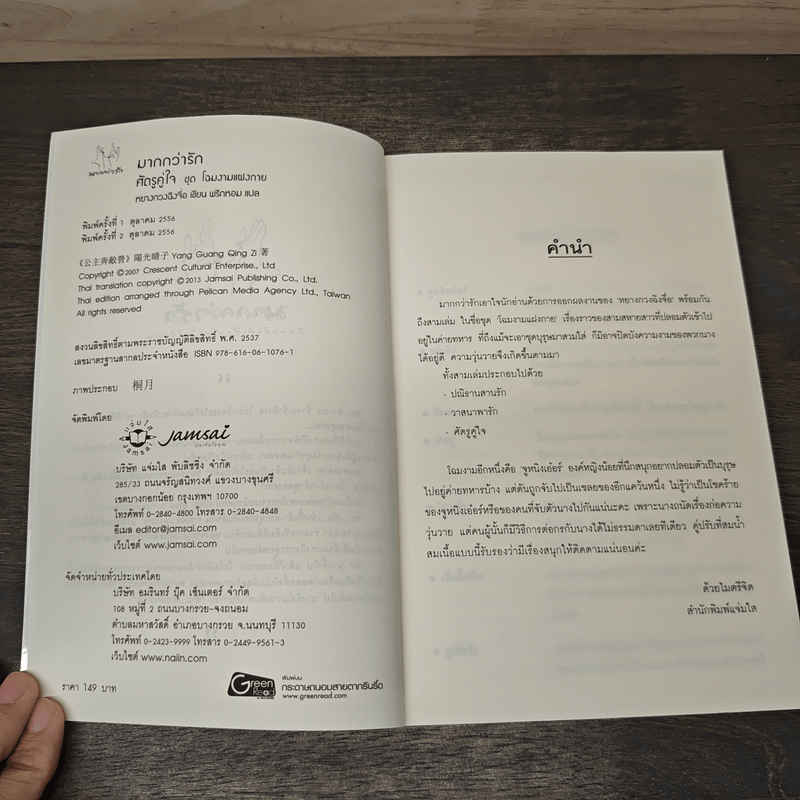 มากกว่ารัก
มากกว่ารัก
ศัตรูคู่ใจ ชุด โฉมงามแฝงกาย
หยางกวงฉิงจื่อ เขียน พริกหอม แปล
พิมพ์ครั้งที่ 1 ตุลาคม 2556
พิมพ์ครั้งที่ 2 ตุลาคม 2556
《公主奔敵營》陽光晴子 Yang Guang Qing Zi 著
Copyright ©2007 Crescent Cultural Enterprise., Ltd
Thai translation copyright ©2013 Jamsai Publishing Co., Ltd.
Thai edition arranged through Pelican Media Agency Ltd., Taiwan
All rights reserved
สงวนลิขสิทธิ์ตามพระราชบัญญัติลิขสิทธิ์ พ.ศ. 2537
เลขมาตรฐานสากลประจำหนังสือ ISBN 978-616-06-1076-1
ภาพประกอบ 桐月
จัดพิมพ์โดย
แจ่มใส
Jamsai
Jamsai
บริษัท แจ่มใส พับลิชชิ่ง จำกัด
285/33 ถนนจรัญสนิทวงศ์ แขวงบางขุนศรี
เขตบางกอกน้อย กรุงเทพฯ 10700
โทรศัพท์ 0-2840-4800 โทรสาร 0-2840-4848
อีเมล editor@jamsai.com
เว็บไซต์ www.jamsai.com
จัดจำหน่ายทั่วประเทศโดย
บริษัท อมรินทร์ บุ๊ค เซ็นเตอร์ จำกัด
108 หมู่ที่ 2 ถนนบางกรวย-จงถนอม
ตำบลมหาสวัสดิ์ อำเภอบางกรวย จ.นนทบุรี 11130
โทรศัพท์ 0-2423-9999 โทรสาร 0-2449-9561-3
เว็บไซต์ www.naiin.com
ราคา 149 บาท
Green Read
พิมพ์บน
กระดาษถนอมสายตากรีนรี้ด
www.greenread.com
คำนำ
มากกว่ารักเอาใจนักอ่านด้วยการออกผลงานของ 'หยางกวงฉิงจื่อ' พร้อมกัน
ถึงสามเล่ม ในชื่อชุด 'โฉมงามแฝงกาย' เรื่องราวของสามสหายสาวที่ปลอมตัวเข้าไป
อยู่ในค่ายทหาร ที่ถึงแม้จะเอาชุดบุรุษมาสวมใส่ ก็มิอาจปิดบังความงามของพวกนาง
ได้อยู่ดี ความวุ่นวายจึงเกิดขึ้นตามมา
ทั้งสามเล่มประกอบไปด้วย
- ปณิธานสานรัก
- วาสนาพารัก
- ศัตรูคู่ใจ
โฉมงามอีกหนึ่งคือ 'จูหนิงเอ๋อร์' องค์หญิงน้อยที่นึกสนุกอยากปลอมตัวเป็นบุรุษ
ไปอยู่ค่ายทหารบ้าง แต่ดันถูกจับไปเป็นเชลยของอีกแคว้นหนึ่ง ไม่รู้ว่าเป็นโชคร้าย
ของจูหนิงเอ๋อร์หรือของคนที่จับตัวนางไปกันแน่นะคะ เพราะนางถนัดเรื่องก่อความ
วุ่นวาย แต่คนผู้นั้นก็มีวิธีการต่อกรกับนางได้ไม่ธรรมดาเลยทีเดียว คู่ปรับที่สมน้ำ
สมเนื้อแบบนี้รับรองว่ามีเรื่องสนุกให้ติดตามแน่นอนค่ะ
ด้วยไมตรีจิต
สำนักพิมพ์แจ่มใส